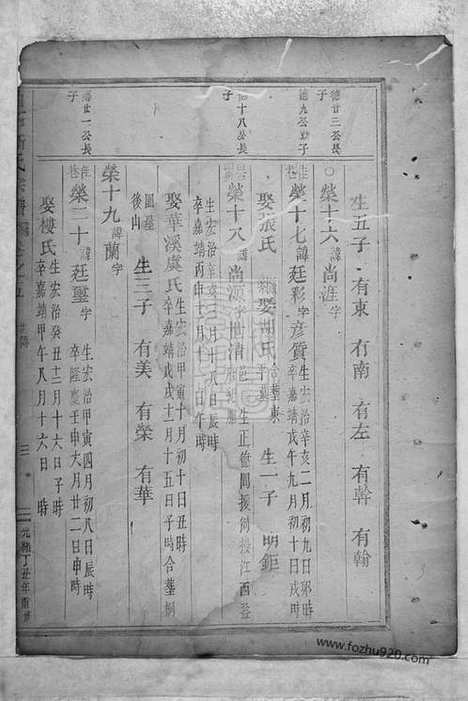 德廿三公長
子
德九公嗣子
德十八公長
子
德廿一公長
子
生五子 有東 有南 有左 有幹 有翰
○榮十六 諱 尚淮 字
榮十七 諱 廷彩 字 彥質 生宏治辛亥二月初九日卯時
卒嘉靖戊午九月初十日戌時
娶張氏 娶胡氏 合塟東 生一子 明鉅
榮十八 諱 尚源 字 邑 生正 援例授江西
生宏治辛亥三月十八日辰時
卒嘉靖丙申十二月十 日午時
娶華溪虞氏 生宏治甲寅十月初十日丑時
卒嘉靖戊戌十二月十五日子時合塟桐
園屋
後山 生三子 有美 有榮 有華
榮十九 諱 蘭 字
榮二十 諱 廷璽 字 生宏治甲寅四月初八日辰時
卒隆慶壬申六月廿二日申時
娶樓氏 生宏治癸丑十二月十六日子時
卒嘉靖甲午八月十六日 時
三
丁丑年重
www.fozhu920.com